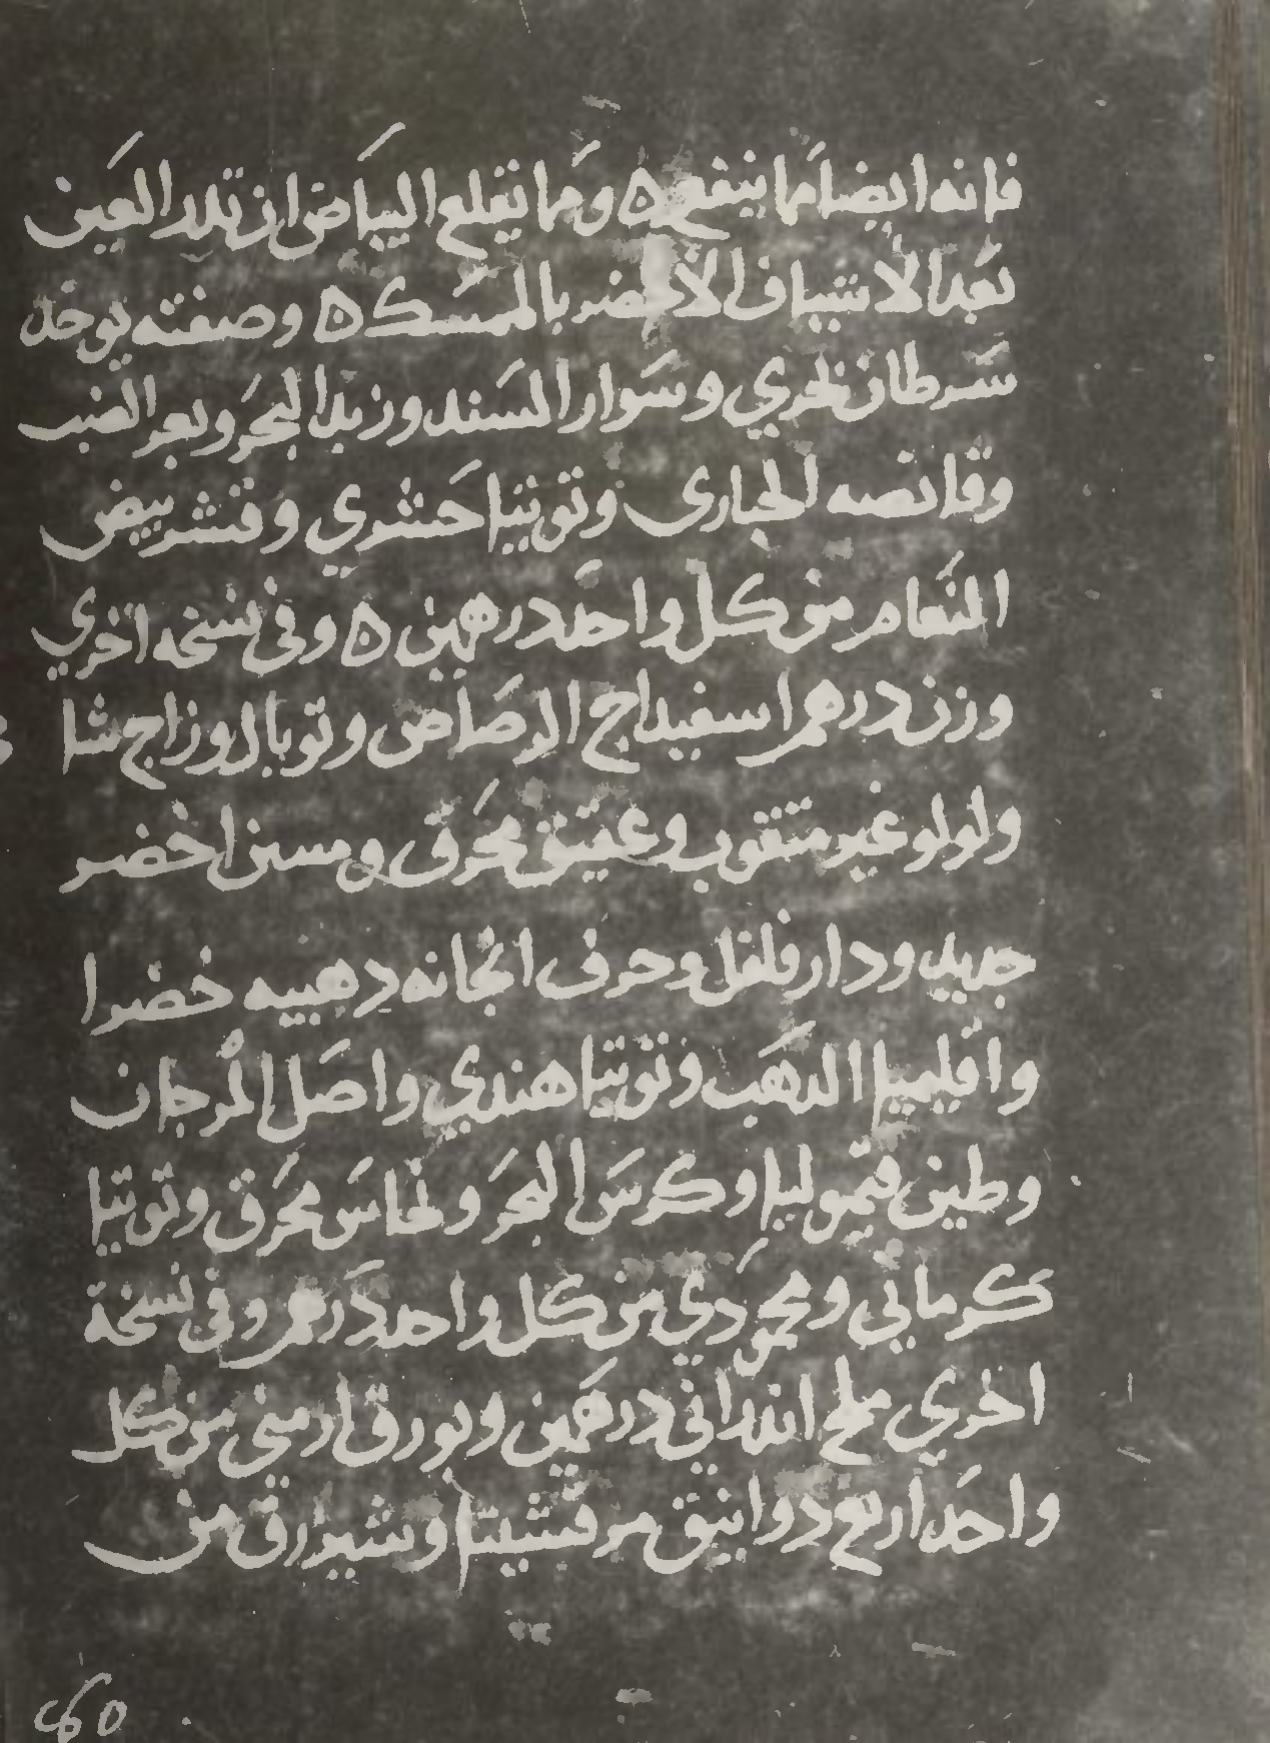 فانه ايضا مما ينفع ه ومما يقلع البياض ان تلد العين
بعد الاشياف الاخضر بالمسك ه وصفته يوخد
سرطان بحري وسوار السند وزبد البحر وبعر الضب
وقانصه الحبارى وتوتيا حشري وقشر بيض
النعام من كل واحد درهمين ه وفي نسخه اخري
وزن درهم اسفيداج الرصاص وتوبال وزاج شا
ولولو غير متقوب وعقيق محرق ومسن اخضر
جديد ودار فلفل وحرف انجانه دهبيه خضرا
واقليميا الدهب وتوتيا هندي واصل المرجان
وطين قيموليا وكرس البحر ونحاس محرق وتوتيا
كرماني ومحمودي من كل واحد درهم وفي نسخة
اخري ملح اندراني درهمين وبورق ارمني من كل
واحد اربع دوانيق مرقشيتا وشيزرق من
60